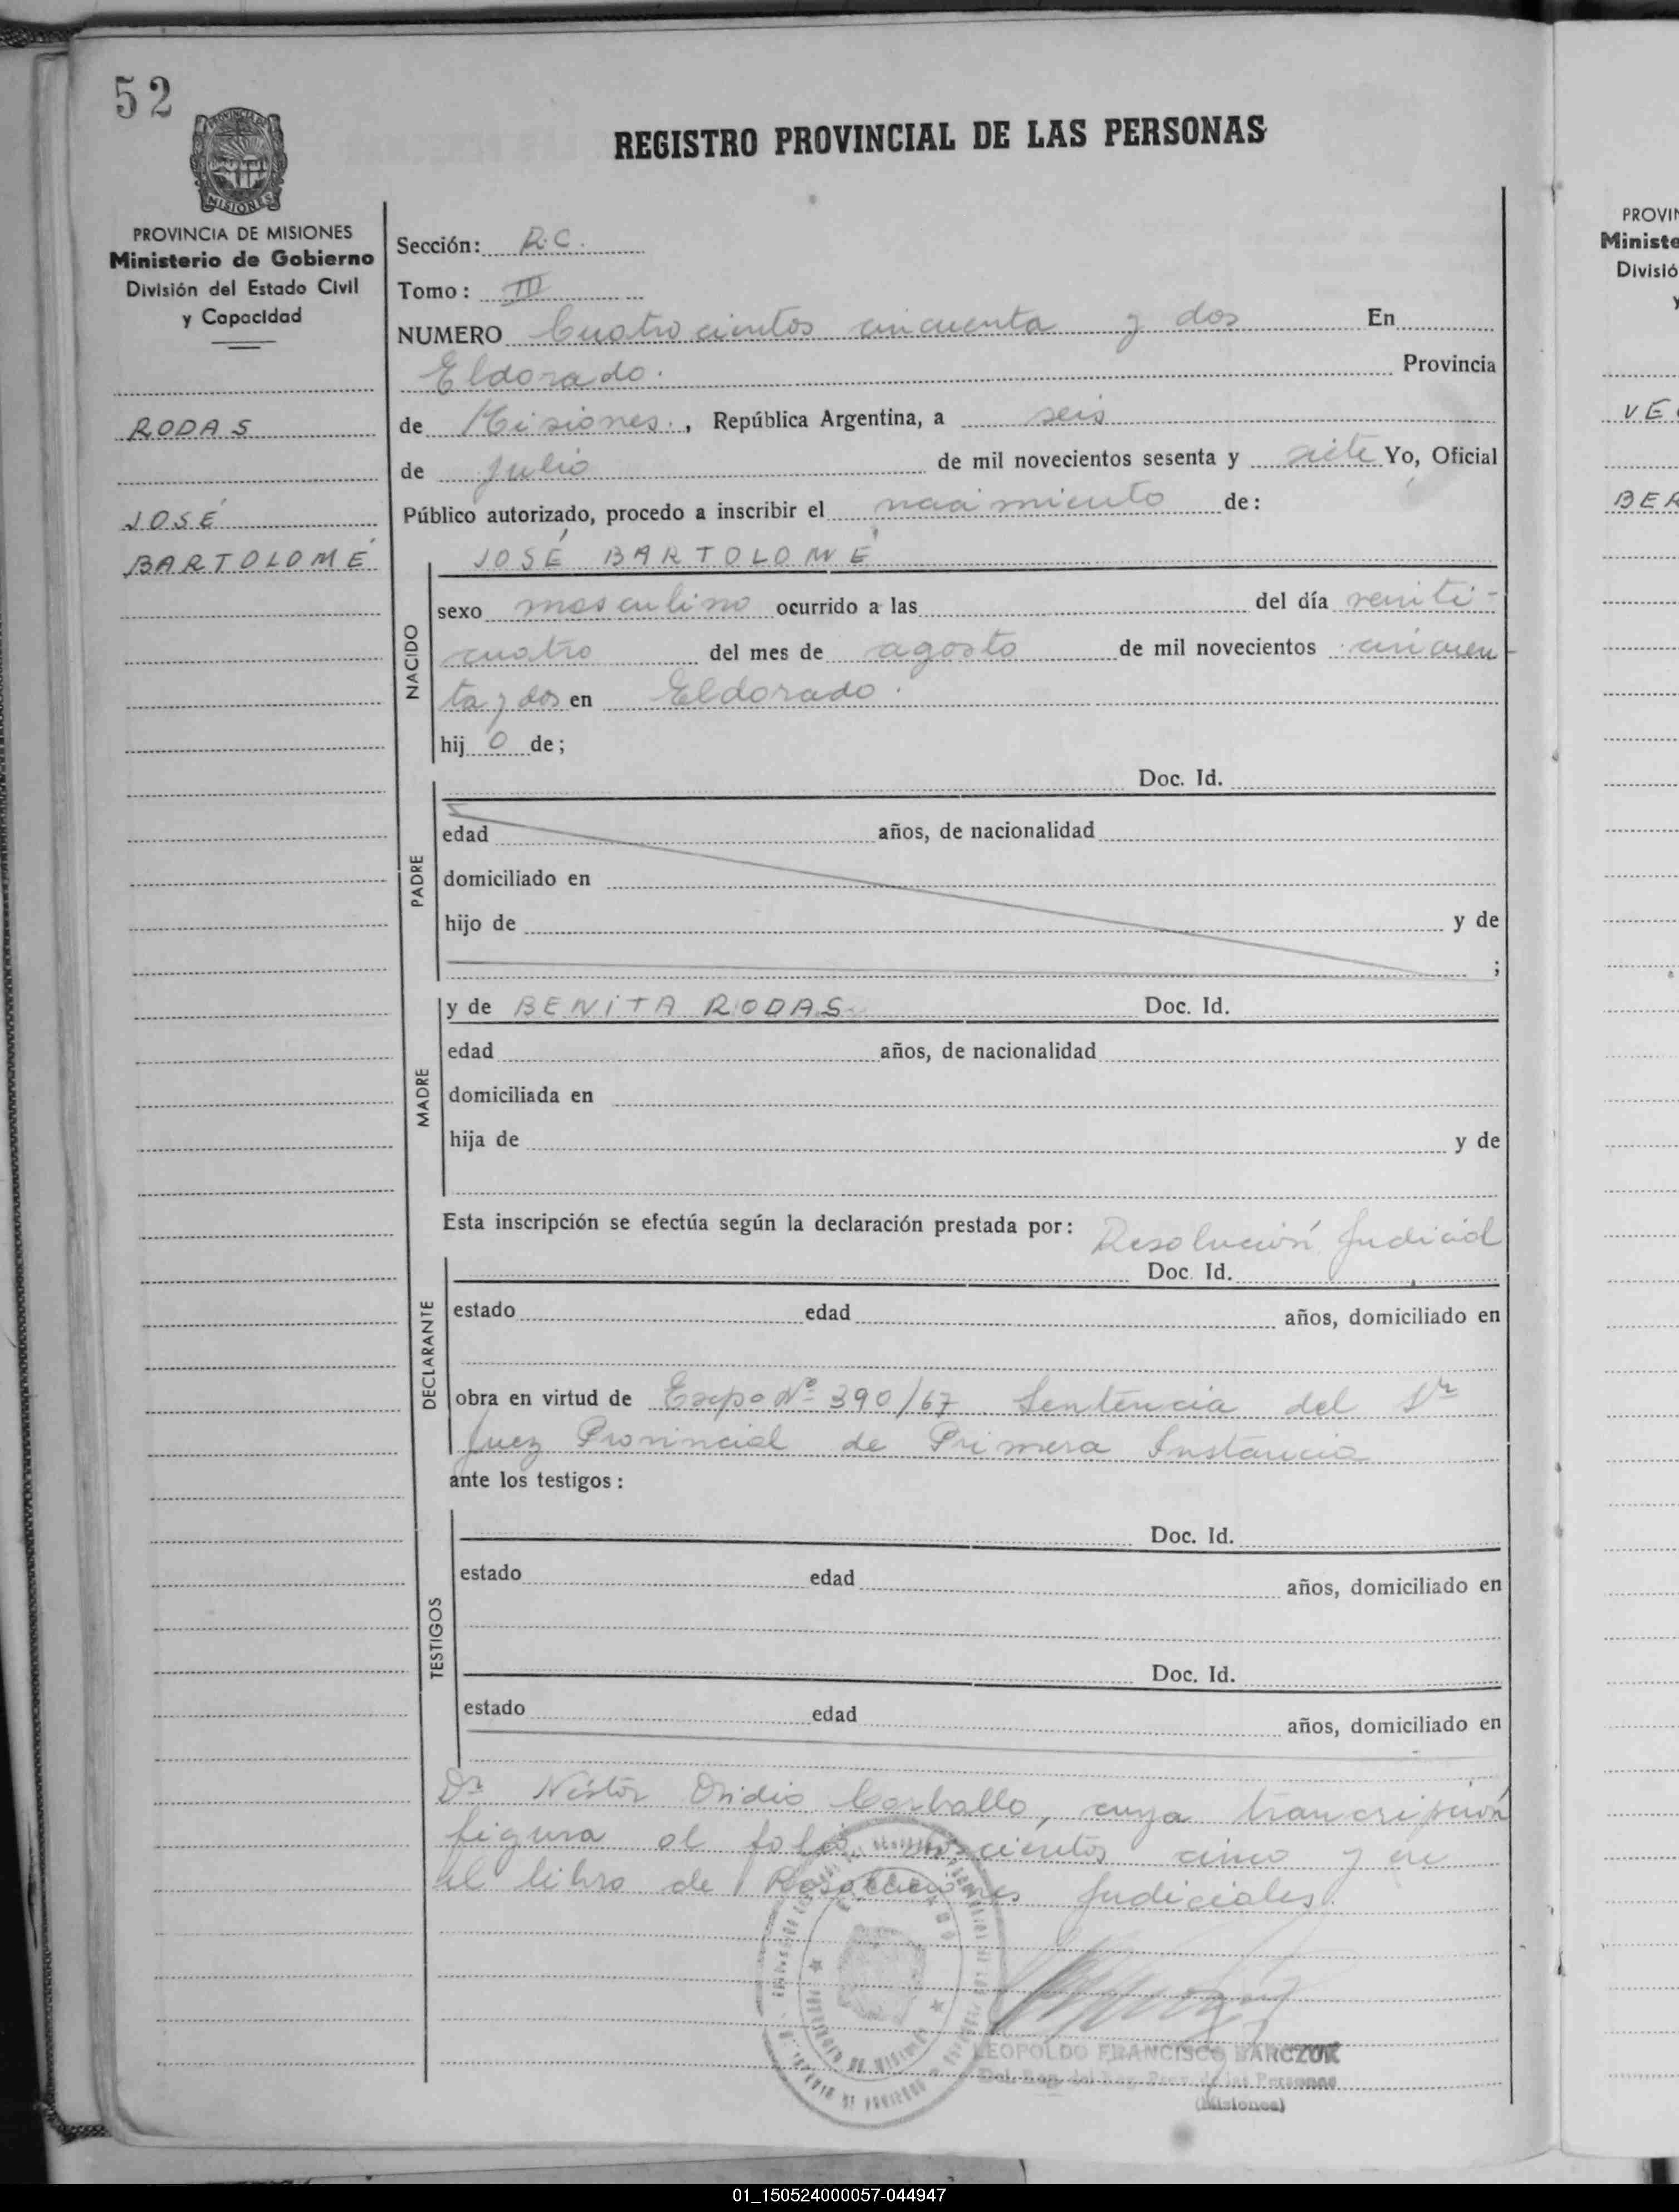 52
REGISTRO PROVINCIAL DE LAS PERSONAS
PROVINCIA DE
MISIONES
PROVINCIA DE MISIONES
Ministerio de Gobierno
División del Estado Civil
y Capacidad
RODAS
JOSÉ
BARTOLOMÉ
Sección: R.C.
Tomo: III
NUMERO Cuatrocientos cincuenta y dos En
Eldorado. Provincia
de Misiones., República Argentina, a seis
de julio de mil novecientos sesenta y siete Yo, Oficial
Público autorizado, procedo a inscribir el nacimiento de:
JOSÉ BARTOLOMÉ
NACIDO
sexo masculino ocurrido a las del día veinti-
cuatro del mes de agosto de mil novecientos cincuen-
ta y dos en Eldorado.
hij o de;
Doc. Id.
PADRE
edad años, de nacionalidad
domiciliado en
hijo de y de
;
MADRE
y de BENITA RODAS Doc. Id.
edad años, de nacionalidad
domiciliada en
hija de y de
Esta inscripción se efectúa según la declaración prestada por: Resolución Judicial
DECLARANTE
Doc. Id.
estado edad años, domiciliado en
obra en virtud de Expe Nº 390/67 Sentencia del Sr
Juez Provincial de Primera Instancia
ante los testigos:
TESTIGOS
Doc. Id.
estado edad años, domiciliado en
Doc. Id.
estado edad años, domiciliado en
Dr Néstor Ovidio Carballo, cuya transcripción
figura al folio cinco y en
el libro de Resoluciones Judiciales.
LEOPOLDO FRANCISCO BARCZUK
Del. Reg. del Reg. Prov. de las Personas
(Misiones)
PROVIN
Ministe
Divisió
y
VE
BER
01_150524000057-044947